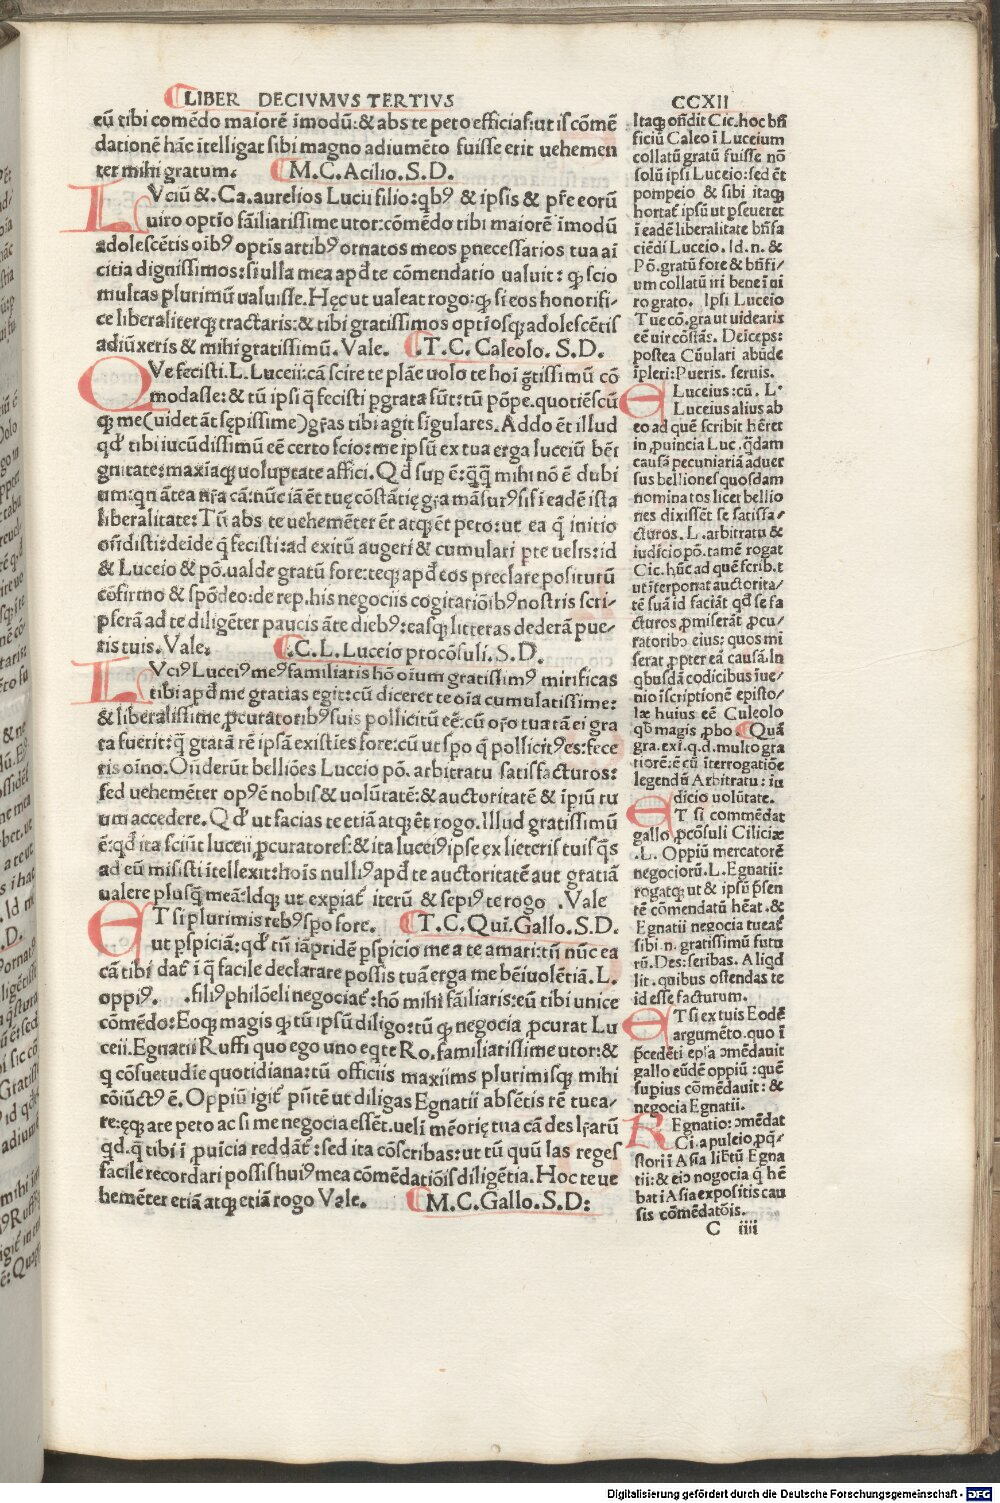 LIBER DECIVMVS TERTIVS
CCXII
cū tibi comēdo maiorē īmodū:& abs te peto efficias:ut is cōmē
dationē hāc ītelligat sibi magno adiumēto fuisse erit uehemen
ter mihi gratum. M.C.Acilio.S.D.
LVciū &.Ca.aurelios Lucii filio:qbꝰ & ipsis & pr̄e eorū
uiro optīo fāiliarissime utor:cōmēdo tibi maiorē īmodū
adolescētis oībꝰ optīs artibꝰ ornatos meos pnecessarios tua ai
citia dignissimos:si ulla mea apd̄ te cōmendatio ualuit: qp scio
multas plurimū ualuisse.Hęc ut ualeat rogo:qp si eos honorifi-
ce liberaliterqꝫ tractaris:& tibi gratissimos optīosqꝫ adolescētis
adiūxeris & mihi gratissimū.Vale. .T.C.Caleolo.S.D.
QVe fecisti.L.Luceii:cā scire te plāe uolo te hoī gr̄tissimū cō
modasse:& tū ipsi q̄ fecisti pgrata sūt:tū pōpe.quotiēscū
qꝫ me(uidet āt sępissime)gr̄as tibi agit sīgulares.Addo ēt illud
qd̄ tibi iucūdissimū eē certo scio:me ipsū ex tua erga luceiū bēī
gnitate:maxīaqꝫ uoluptate affici.Qd̄ sup ē:q̄q̄ mihi nō ē dubi
um:qn āntea nr̄a cā:nūc iā ēt tuę cōstātię gr̄a māsurꝰ sis ī eadē ista
liberalitate:Tū abs te uehemēter ēt atqꝫ ēt peto:ut ea q̄ initio
on̄disti:deīde q̄ fecisti:ad exitū augeri & cumulari pte uelis:id
& Luceio & pō.ualde gratū fore:teqꝫ apd̄ eos preclare positurū
cōfirmo & spōdeo:de rep.his negociis cogitatiōibꝰ nostris scri-
pserā ad te diligēter paucis āte diebꝰ:easqꝫ litteras dederā pue-
ris tuis.Vale. .C.L.Luceio procōsuli.S.D.
LVciꝰ Luceiꝰ meꝰ familiaris hō oīum gratissimꝰ mirificas
tibi apd̄ me gratias egit:cū diceret te oīa cumulatissime:
& liberalissime ꝓcuratoribꝰ suis pollicitū eē:cū or̄o tua tā ei gra
ta fuerit:q̄ gratā rē ipsā existīes fore:cū ut spo q̄ pollicitꝰ es:fece
ris oīno.Onderūt belliōes Luceio pō.arbitratu satisfacturos:
sed uehemēter opꝰ ē nobis & uolūtatē:& auctoritatē & īpiū tu
um accedere.Qd̄ ut facias te etiā atqꝫ ēt rogo.Illud gratissimū
ē:qd̄ ita sciūt luceii ꝓcuratores:& ita luceiꝰ ipse ex litteris tuis q̄s
ad eū misisti ītellexit:hoīs nulliꝰ apd̄ te auctoritatē aut gratiā
ualere plusq̄ meā:Idqꝫ ut expiat̄ iterū & sepiꝰ te rogo .Vale
ET si plurimis rebꝰ spo fore. T.C.Qui.Gallo.S.D.
ut pspiciā:qd̄ tū iāpridē pspicio me a te amari:tū nūc ea
cā tibi dat̄ ī q̄ facile declarare possis tuā erga me bēiuolētiā.L.
oppiꝰ. .filiꝰ philōeli negociat̄:hō mihi fāiliaris:eū tibi unice
cōmēdo:Eoqꝫ magis qꝫ tū ipsū diligo:tū qꝫ negocia ꝓcurat Lu
ceii.Egnatii Ruffi quo ego uno eqte Ro.familiarissime utor:&
q cōsuetudīe quotidiana:tū officiis maxiims plurimisqꝫ mihi
cōiūctꝰ ē.Oppiū igit̄ pn̄tē ut diligas Egnatii absētis rē tuea-
re:ęqꝫ ate peto ac si me negocia essēt.ueli mēorię tua cā des lr̄arū
qd.q̄ tibi ī ꝓuīcia reddāt̄:sed ita cōscribas:ut tū quū las reges
facile recordari possis huiꝰ mea cōmēdatiōīs diligētia.Hoc te ue
hemēter etiā atqꝫ etiā rogo Vale. M.C.Gallo.S.D:
Itaqꝫ on̄dit Cic.hoc bn̄
ficiū Caleo ī Luceium
collatū gratū fuisse nō
solū ipsi Luceio:sed ēt
pompeio & sibi itaqꝫ
hortat̄ ipsū ut pseueret
ī eadē liberalitate bn̄fa
ciēdi Luceio.Id.n.&
Pō.gratū fore & bn̄fi-
um collatū iri bene ī ui
ro grato. Ipsi Luceio
Tue cō.gra ut uidearis
eē uir cōstās. Deīceps:
postea Cūulari abūde
īpleri:Pueris.seruis.
ELuceius:cū.L.
Luceius alius ab
eo ad quē scribit hēret
in ꝓuincia Luc.qdam
causā pecuniariā aduer
sus belliones quosdam
nominatos licet bellio
nes dixissēt se satisfa-
cturos.L.arbitratu &
iudicio pō.tamē rogat
Cic.hūc ad quē scrib.t
ut īterponat auctorita-
tē suā id faciāt qd̄ se fa
cturos ꝓmiserāt ꝓcu-
ratoribꝫ eius:quos mi
serat ꝓpter eā causā.In
qbusdā codicibus īue-
nio īscriptionē episto-
læ huius eē Culeolo
qd̄ magis ꝓbo. Quā
gra.exi.q.d.multo gra
tiorē:ē cū īterrogatiōe
legendū Arbitratu:iu
dicio uolūtate.
ET si commēdat
gallo ꝓcōsuli Ciliciæ
.L.Oppiū mercatorē
negociorū.L.Egnatii:
rogatqꝫ ut & ipsū p̄sen
tē cōmendatū hēat.&
Egnatii negocia tueat̄
sibi.n.gratissimū futu
rū.Des:scribas.Aliqd
lit.quibus ostendas te
id esse facturum.
ET si ex tuis Eodē
argumēto.quo ī
p̄cedēti epīa ꝯmēdauit
gallo eūdē oppiū:quē
supius cōmēdauit:&
negocia Egnatii.
REgnatio:ꝯmēdat
Ci.apuleio.ꝓq̄-
stori ī Asia lib̄tū Egna
tii:& eiꝰ nogocia q̄ hē
bat ī Asia expositis cau
sis cōmēdatōis.
C iiii
Digitalisierung gefördert durch die Deutsche Forschungsgemeinschaft - DFG